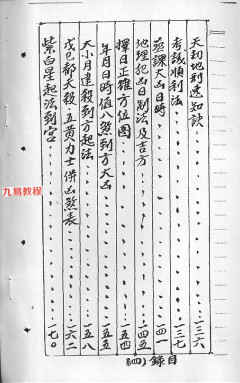 天利地利逐知訣......一三六
考試順利法......一三七
燕課大凶日時......一四一
地理犯凶日制法及吉方......一四五
擇日正確方位圖......一五四
年月日時值八煞到方大凶......一五五
大小月建殺到方起法......一五八
戊己都天殺五黃力士併凶煞表......一六二
紫白星起法到宮......一七〇
目錄(四)
九易教程